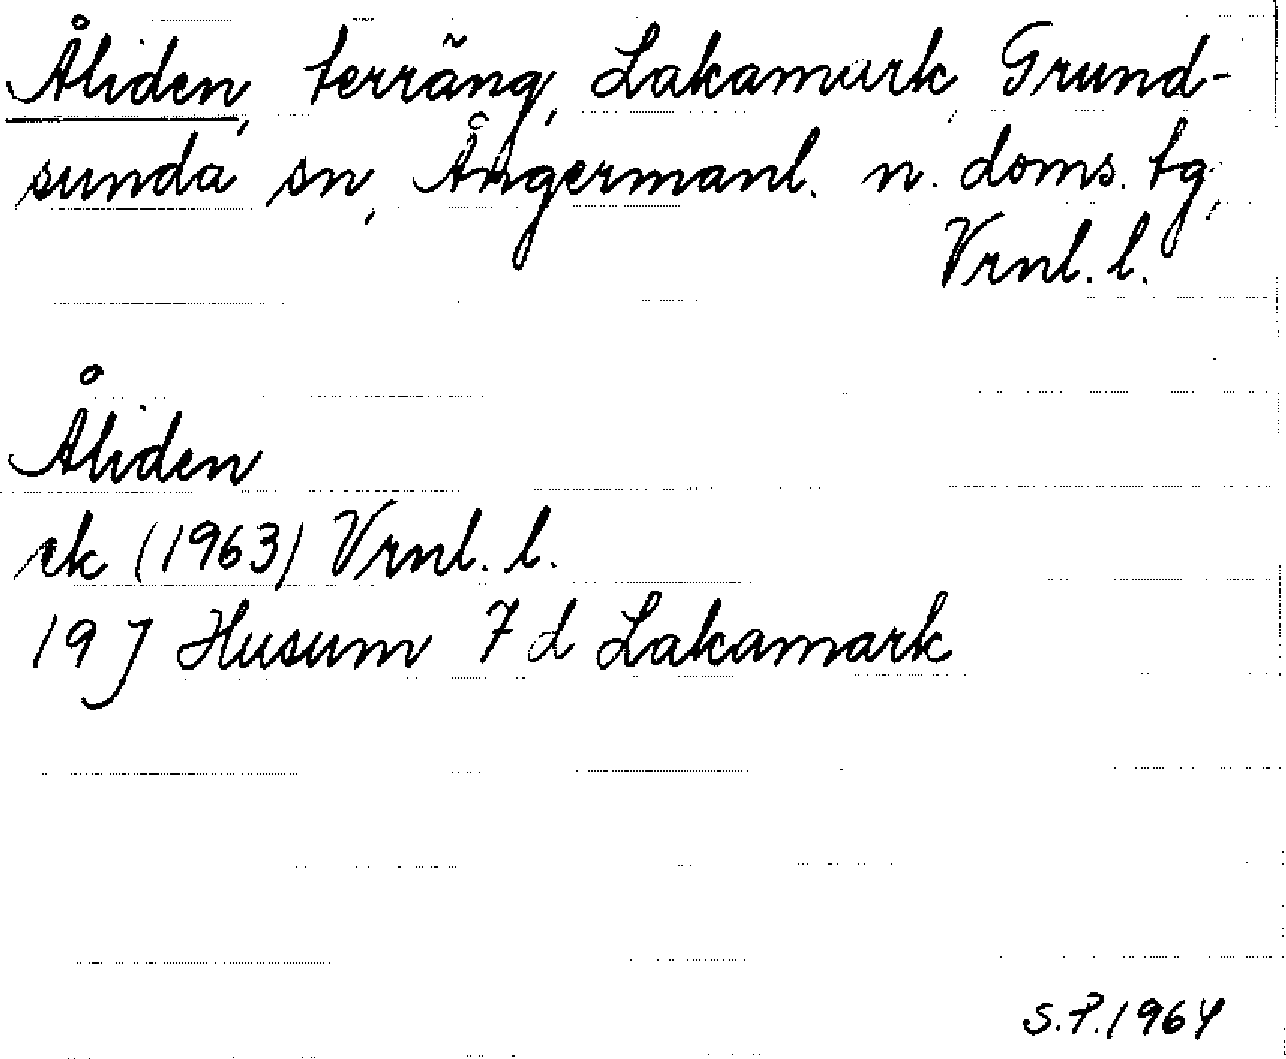 Åliden, terräng, Lakamark, Grund-
sunda sn, Ångermanl. n. doms. tg,
Vrnl. l.
Åliden
ek (1963) Vrnl. l.
19 J Husum 7 d Lakamark
S.P. 1964